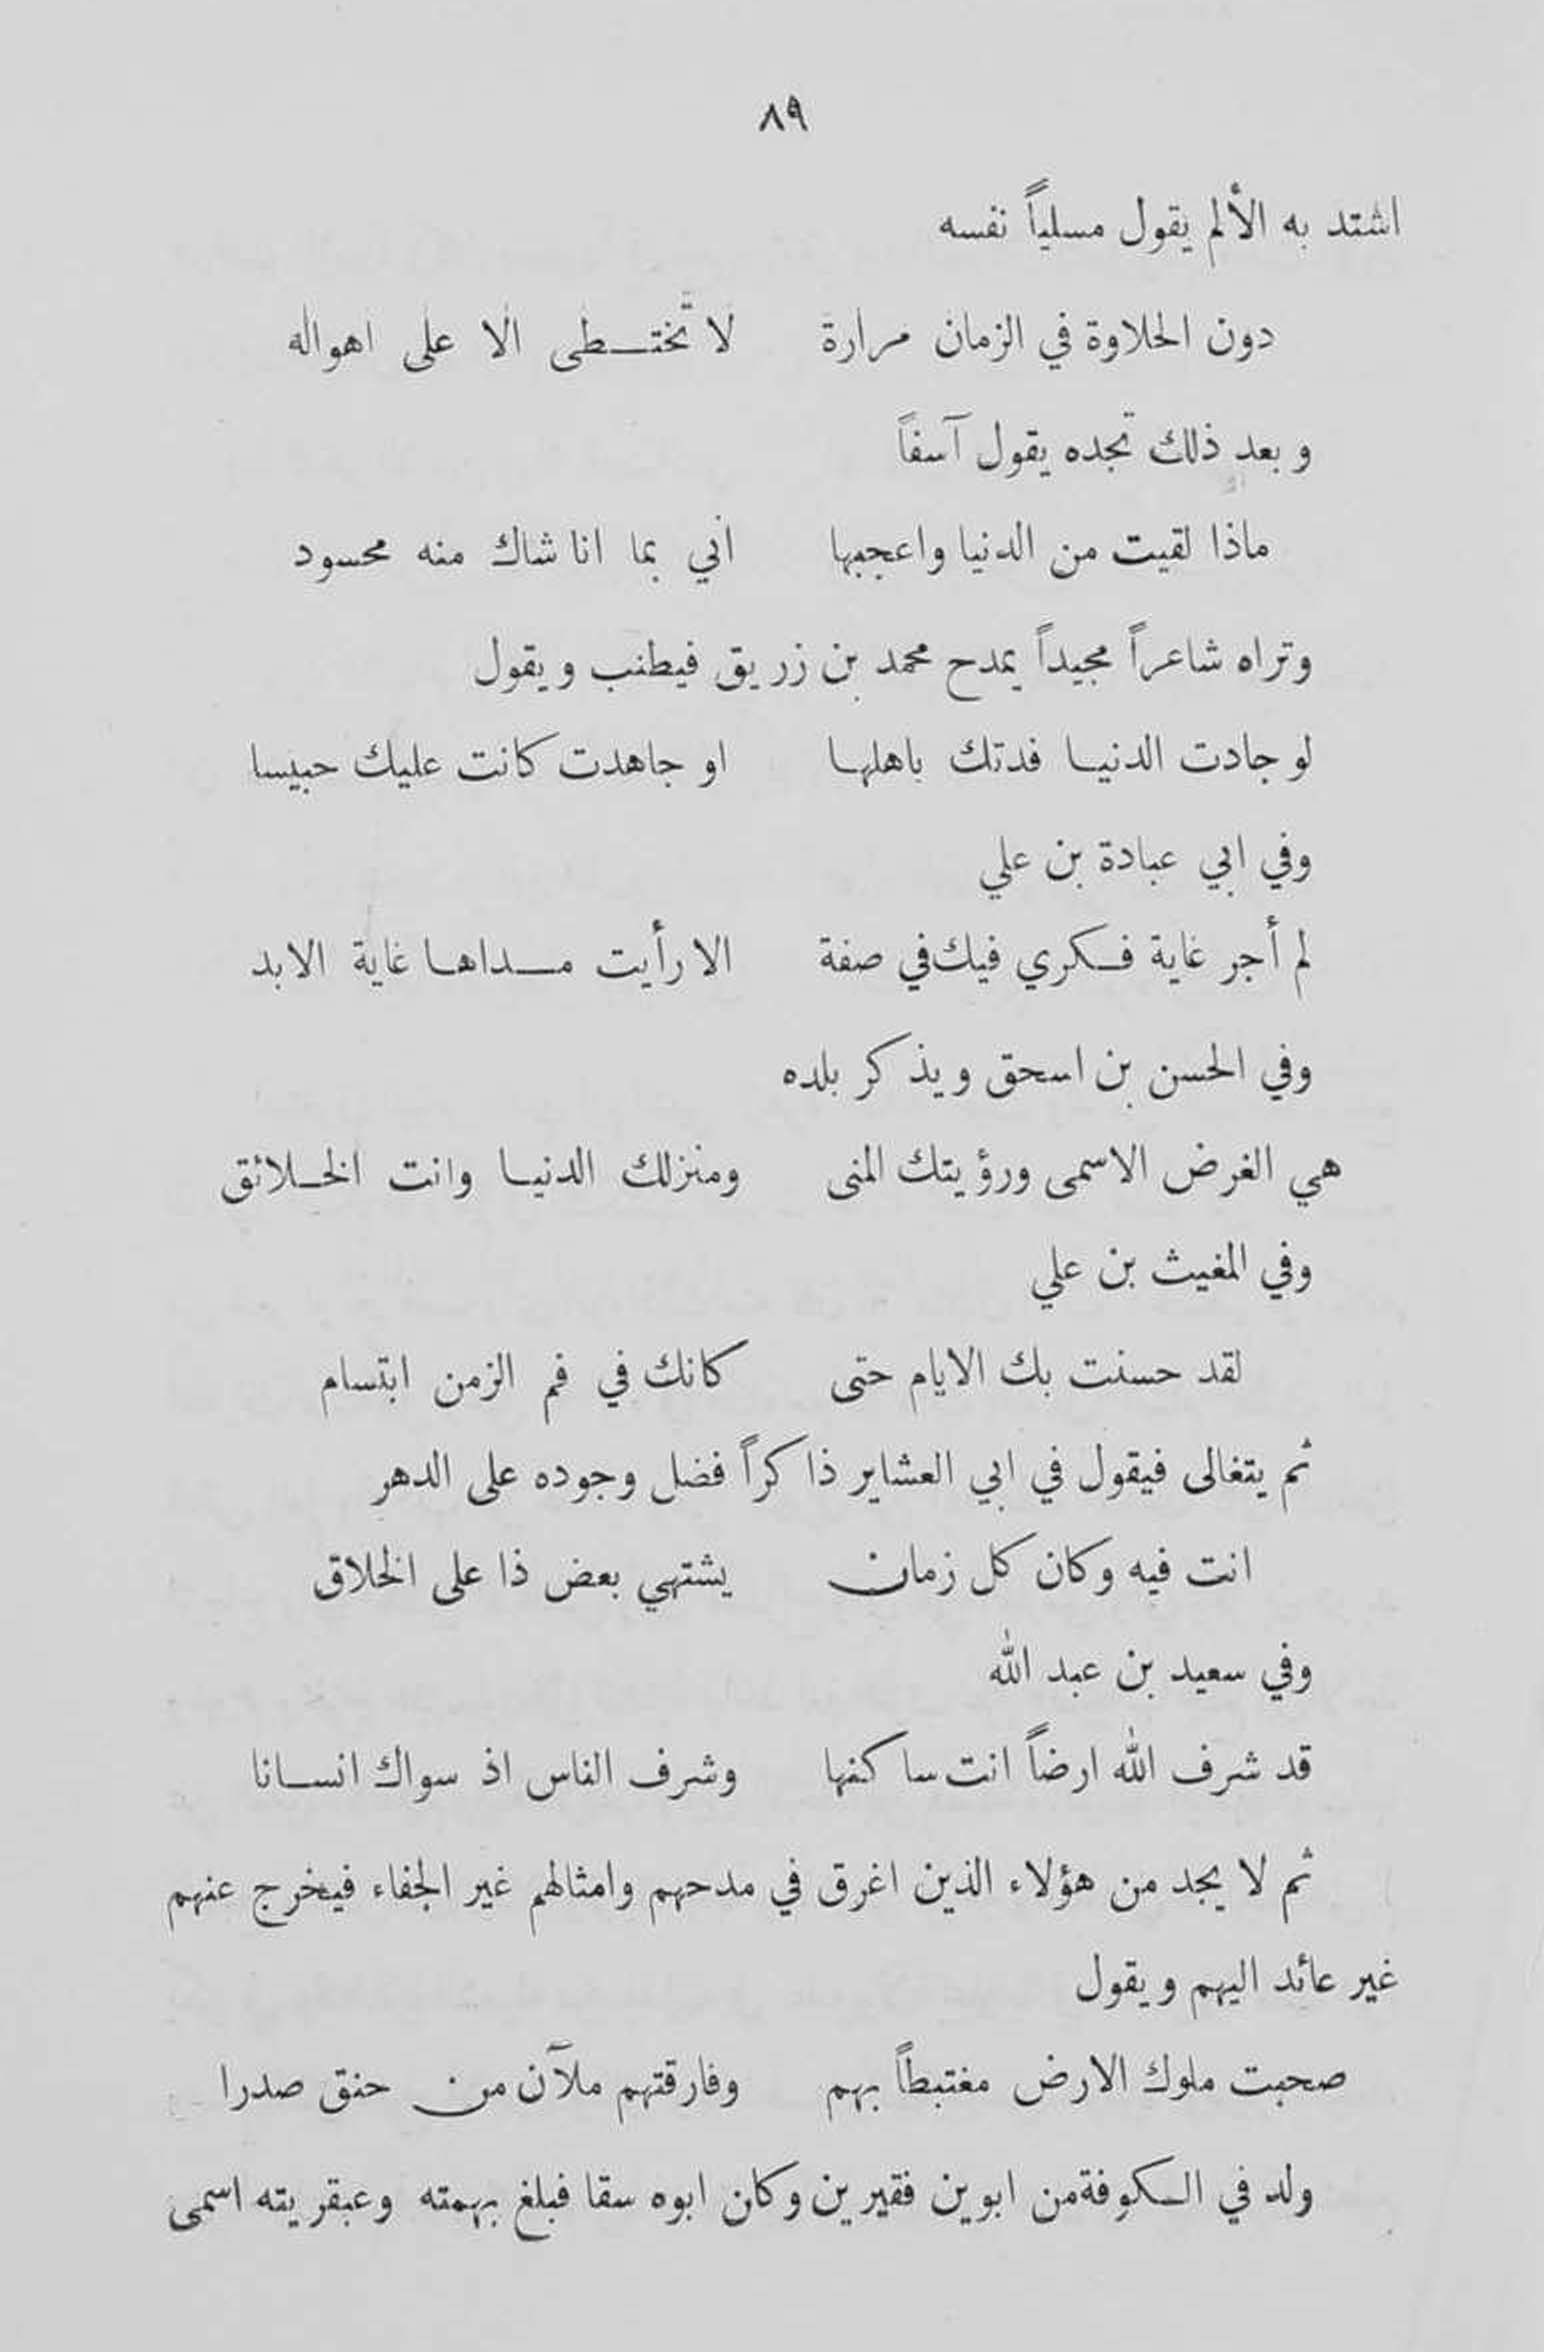 ٨٩
اشتد به الألم يقول مسلياً نفسه
دون الحلاوة في الزمان مرارة لا تختطى الا على اهواله
وبعد ذلك تجده يقول آسفاً
ماذا لقيت من الدنيا واعجبها اني بما انا شاك منه محسود
وتراه شاعراً مجيداً يمدح محمد بن زريق فيطنب ويقول
لو جادت الدنيا فدتك باهلها او جاهدت كانت عليك حبيسا
وفي ابي عبادة بن علي
لم أجر غاية فكري فيك في صفة الا رأيت مداها غاية الابد
وفي الحسن بن اسحق ويذكر بلده
هي الغرض الاسمى ورؤيتك المنى ومنزلك الدنيا وانت الخلائق
وفي المغيث بن علي
لقد حسنت بك الايام حتى كانك في فم الزمن ابتسام
ثم يتغالى فيقول في ابي العشاير ذاكراً فضل وجوده على الدهر
انت فيه وكان كل زمان يشتهي بعض ذا على الخلاق
وفي سعيد بن عبد الله
قد شرف الله ارضاً انت ساكنها وشرف الناس اذ سواك انسانا
ثم لا يجد من هؤلاء الذين اغرق في مدحهم وامثالهم غير الجفاء فيخرج عنهم
غير عائد اليهم ويقول
صحبت ملوك الارض مغتبطاً بهم وفارقتهم ملآن من حنق صدرا
ولد في الكوفة من ابوين فقيرين وكان ابوه سقا فبلغ بهمته وعبقريته اسمى